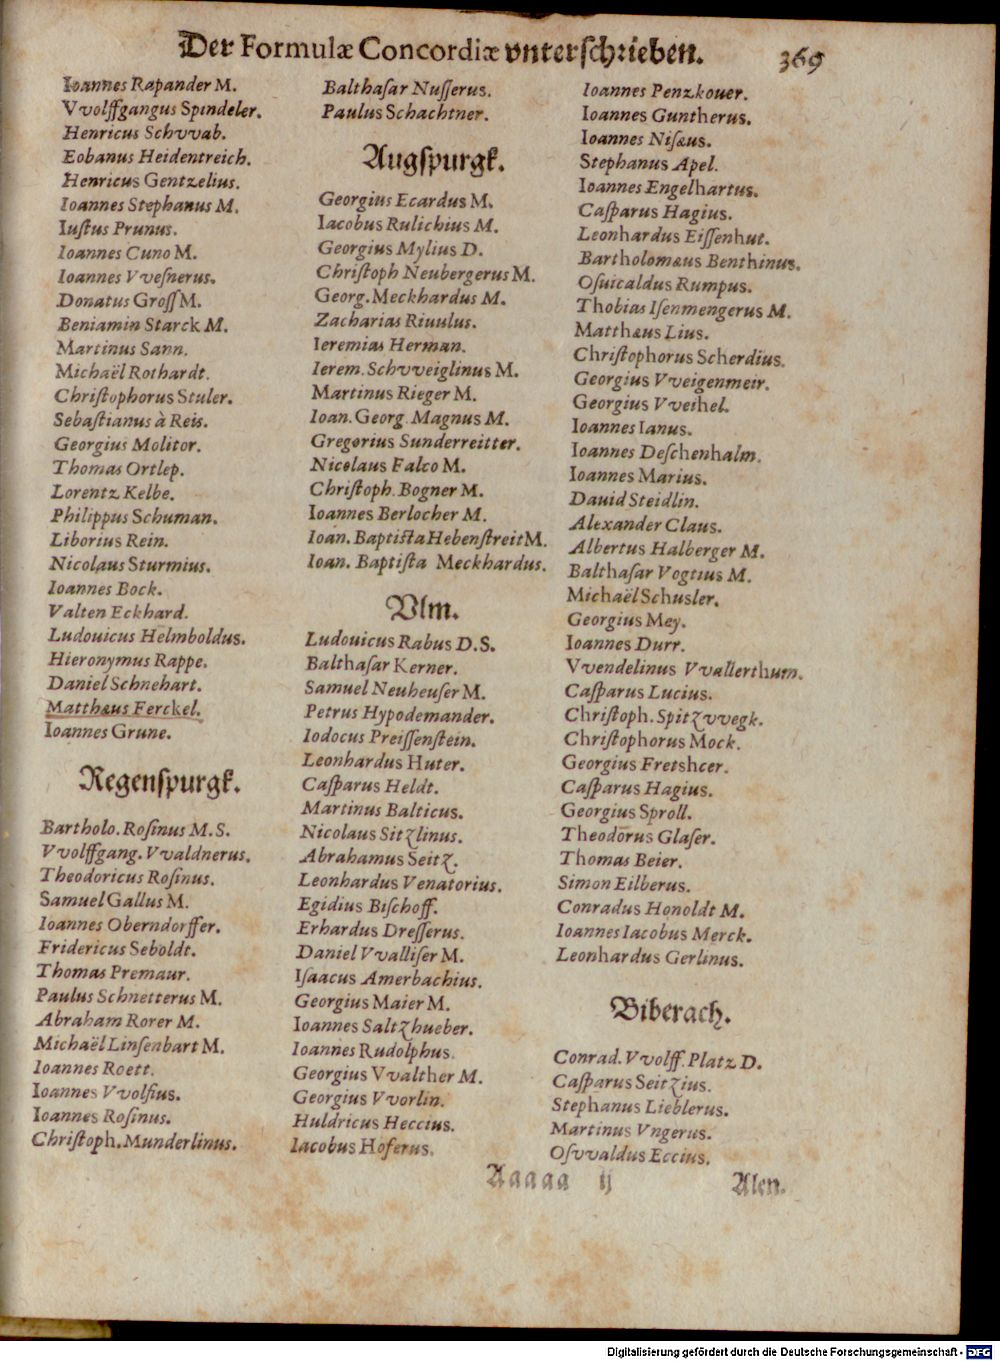 Der Formulæ Concordiæ vnterschrieben. 369
Ioannes Rapander M.
Vvolffgangus Spindeler.
Henricus Schvvab.
Eobanus Heidentreich.
Henricus Gentzelius.
Ioannes Stephanus M.
Iustus Prunus.
Ioannes Cuno M.
Ioannes Vvesnerus.
Donatus Gross M.
Beniamin Starck M.
Martinus Sann.
Michaël Rothardt.
Christophorus Stuler.
Sebastianus à Reis.
Georgius Molitor.
Thomas Ortlep.
Lorentz Kelbe.
Philippus Schuman.
Liborius Rein.
Nicolaus Sturmius.
Ioannes Bock.
Valten Eckhard.
Ludouicus Helmboldus.
Hieronymus Rappe.
Daniel Schnehart.
Matthæus Ferckel.
Ioannes Grune.
Regenspurgk.
Bartholo. Rosinus M. S.
Vvolffgang. Vvaldnerus.
Theodoricus Rosinus.
Samuel Gallus M.
Ioannes Oberndorffer.
Fridericus Seboldt.
Thomas Premaur.
Paulus Schnetterus M.
Abraham Rorer M.
Michaël Linsenbart M.
Ioannes Roett.
Ioannes Vvolfius.
Ioannes Rosinus.
Christoph. Munderlinus.
Balthasar Nusserus.
Paulus Schachtner.
Augspurgk.
Georgius Ecardus M.
Iacobus Rulichius M.
Georgius Mylius D.
Christoph Neubergerus M.
Georg. Meckhardus M.
Zacharias Riuulus.
Ieremias Herman.
Ierem. Schvveiglinus M.
Martinus Rieger M.
Ioan. Georg. Magnus M.
Gregorius Sunderreitter.
Nicolaus Falco M.
Christoph. Bogner M.
Ioannes Berlocher M.
Ioan. Baptista Hebenstreit M.
Ioan. Baptista Meckhardus.
Vlm.
Ludouicus Rabus D. S.
Balthasar Kerner.
Samuel Neuheuser M.
Petrus Hypodemander.
Iodocus Preissenstein.
Leonhardus Huter.
Casparus Heldt.
Martinus Balticus.
Nicolaus Sitzlinus.
Abrahamus Seitz.
Leonhardus Venatorius.
Egidius Bischoff.
Erhardus Dresserus.
Daniel Vvalliser M.
Isaacus Amerbachius.
Georgius Maier M.
Ioannes Saltzhueber.
Ioannes Rudolphus.
Georgius Vvalther M.
Georgius Vvorlin.
Huldricus Heccius.
Iacobus Hoferus.
Ioannes Penzkouer.
Ioannes Guntherus.
Ioannes Nisæus.
Stephanus Apel.
Ioannes Engelhartus.
Casparus Hagius.
Leonhardus Eissenhut.
Bartholomæus Benthinus.
Osuicaldus Rumpus.
Thobias Isenmengerus M.
Matthæus Lius.
Christophorus Scherdius.
Georgius Vveigenmeir.
Georgius Vveihel.
Ioannes Ianus.
Ioannes Deschenhalm.
Ioannes Marius.
Dauid Steidlin.
Alexander Claus.
Albertus Halberger M.
Balthasar Vogtius M.
Michaël Schusler.
Georgius Mey.
Ioannes Durr.
Vvendelinus Vvallerthum.
Casparus Lucius.
Christoph. Spitzvvegk.
Christophorus Mock.
Georgius Fretshcer.
Casparus Hagius.
Georgius Sproll.
Theodorus Glaser.
Thomas Beier.
Simon Eilberus.
Conradus Honoldt M.
Ioannes Iacobus Merck.
Leonhardus Gerlinus.
Biberach.
Conrad. Vvolff. Platz D.
Casparus Seitzius.
Stephanus Lieblerus.
Martinus Vngerus.
Osvvaldus Eccius.
Aaaaa ij Alen.
Digitalisierung gefördert durch die Deutsche Forschungsgemeinschaft - DFG